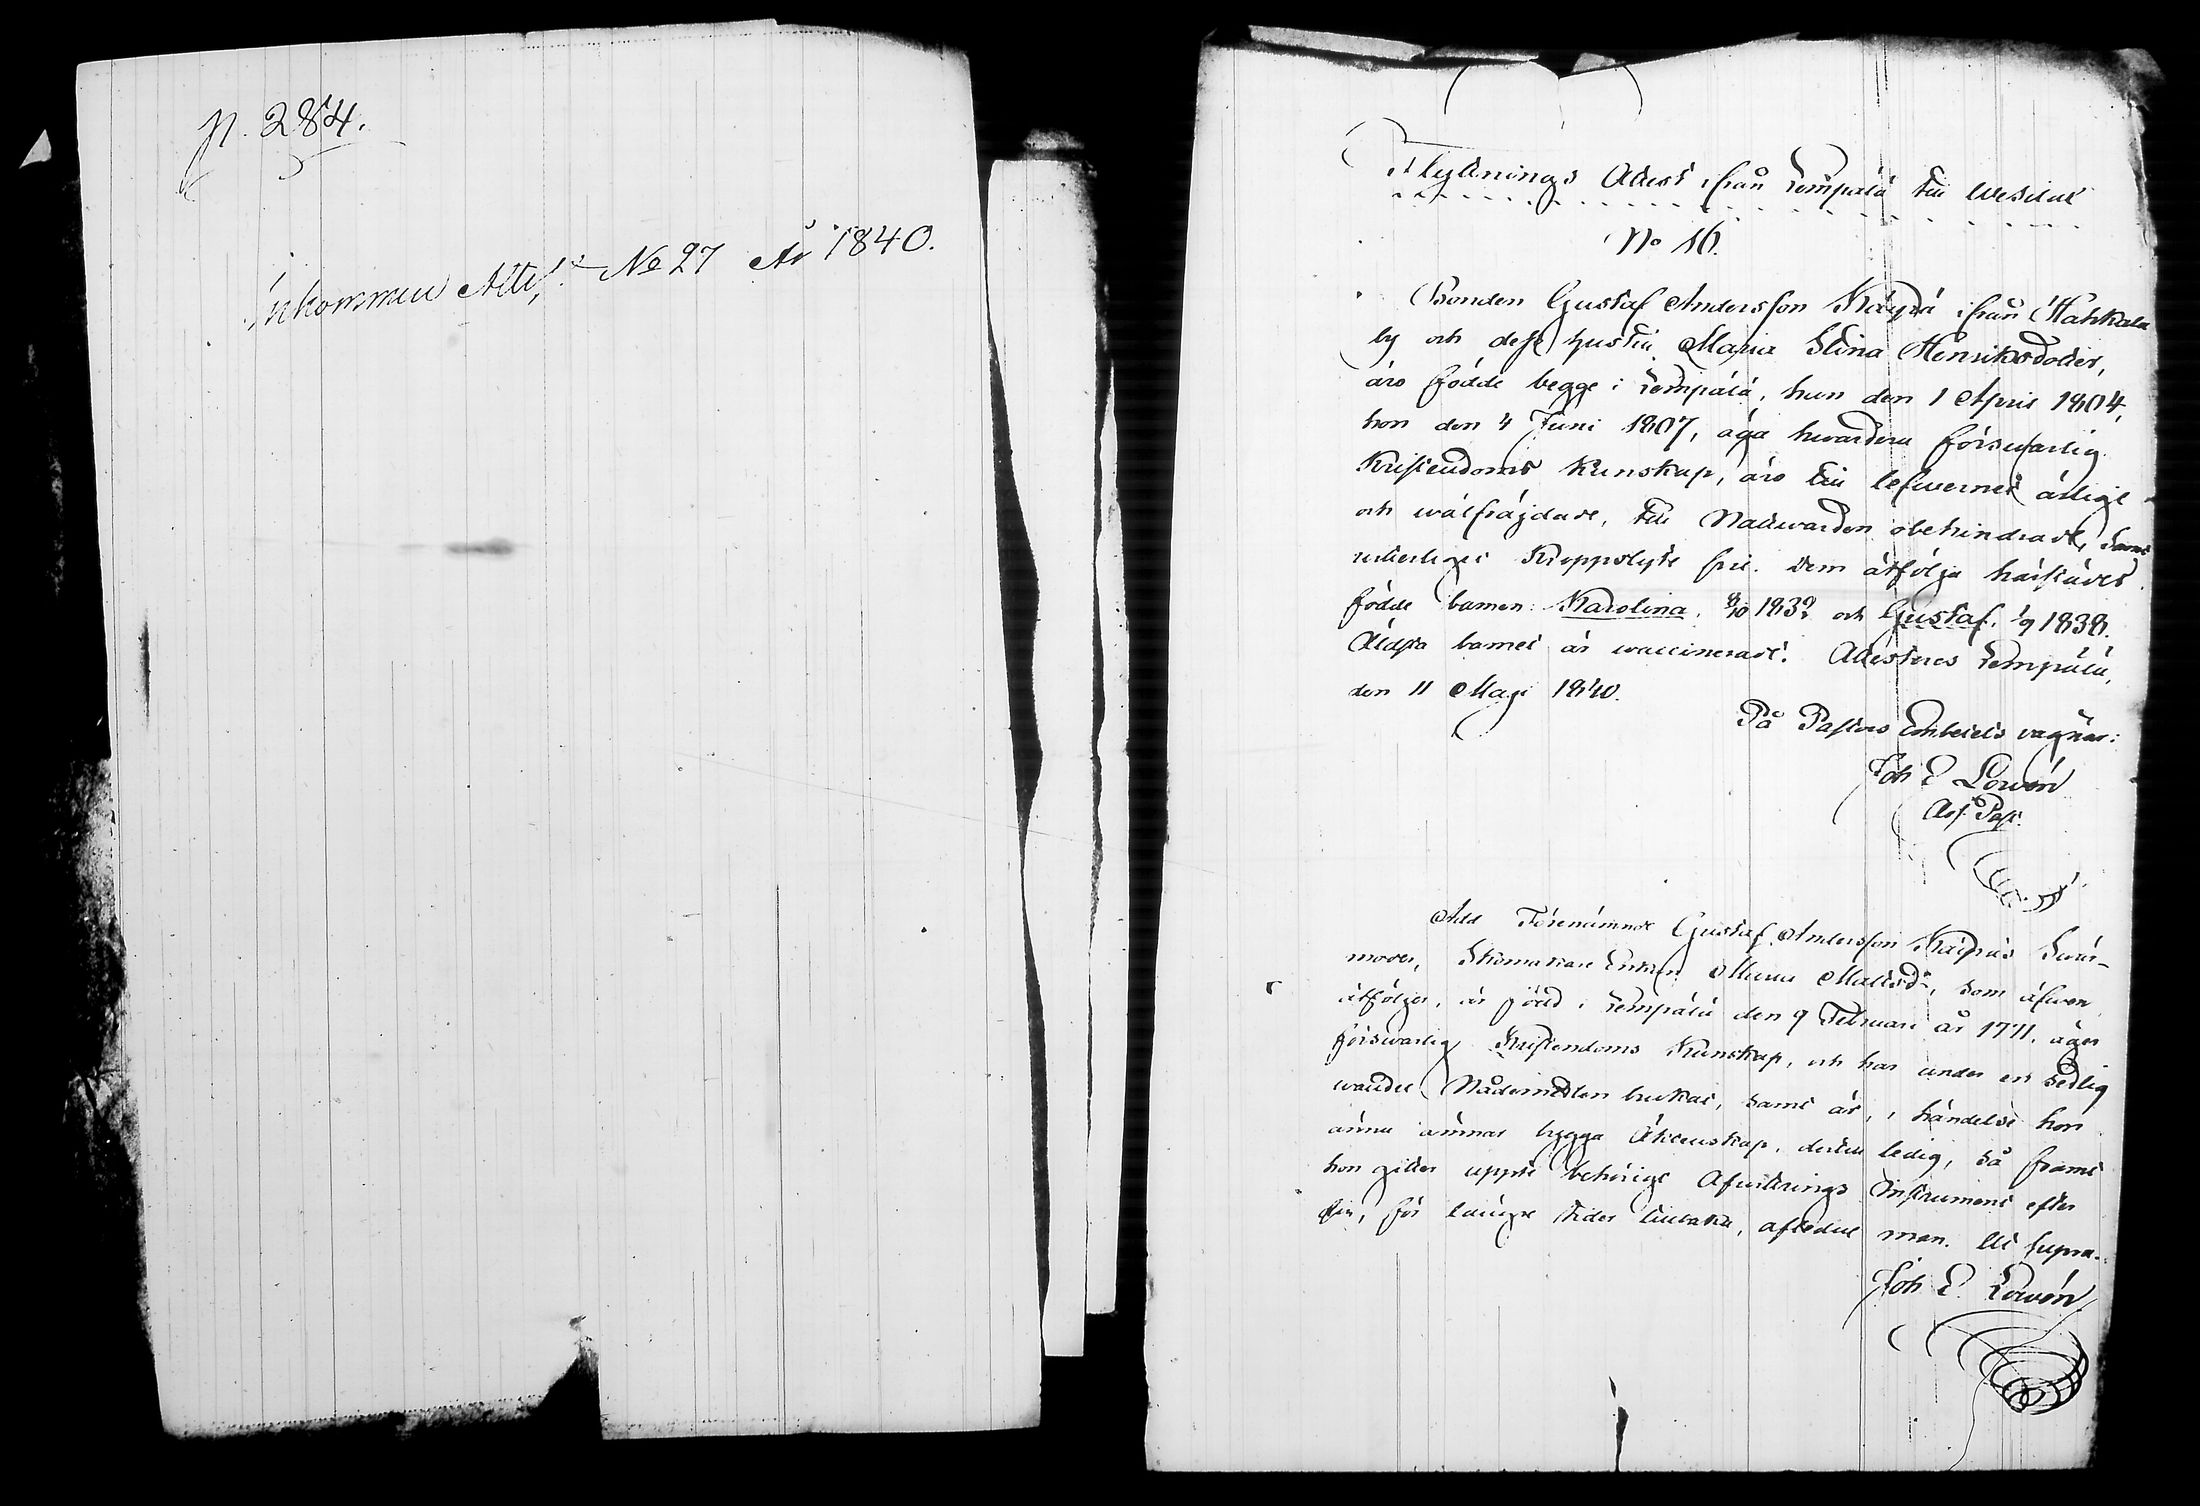 p. 284.
Inkommen Attest No 27 År 1840.
Flyttnings Attest ifrån Lempälä till Wesilaks
No 16.
Bonden Gustaf Andersson Käyrä ifrån Hahkala
by och dess hustru Maria Stina Henriksdotter,
äro födde begge i Lempälä, han den 1 April 1804,
hon den 4 Juni 1807, äga hwardera förswarlig
Kristendoms Kunskap, äro till lefwernet ärlige
och wälfräjdade, till Nattwarden obehindrade, samt
wilerliget Kroppslyte frie. Dem åtfölja härstädes
födde barnen: Karolina 8/10 183 och Gustaf 1/9 1838.
Äldsta barnet är waccineradt. Attesteres Lempälä,
den 11 Maji 1840.
På Pastors Embetets vägnar:
Joh E Lowén
Adj. Past.
Add Förenämnde Gustaf Andersson Käyräs Swär-
moder, Skomakare Enkan Matsd:r, som äfwen
åtföljer, är född i Lempälä den 9 Februari år 1771, äger
förswarlig Kristendoms Kunskap, och har under en sedlig
wandel Nådemedlen brukat, samt är, i händelse hon
ännu ämnar bygga Äktenskap, dertill ledig, så framt
hon gitter uppte behörigt Afwittrings Instrument efter
sin, för längre tider tillbaka, aflidne man. Ut supra.
Joh E. Lowén